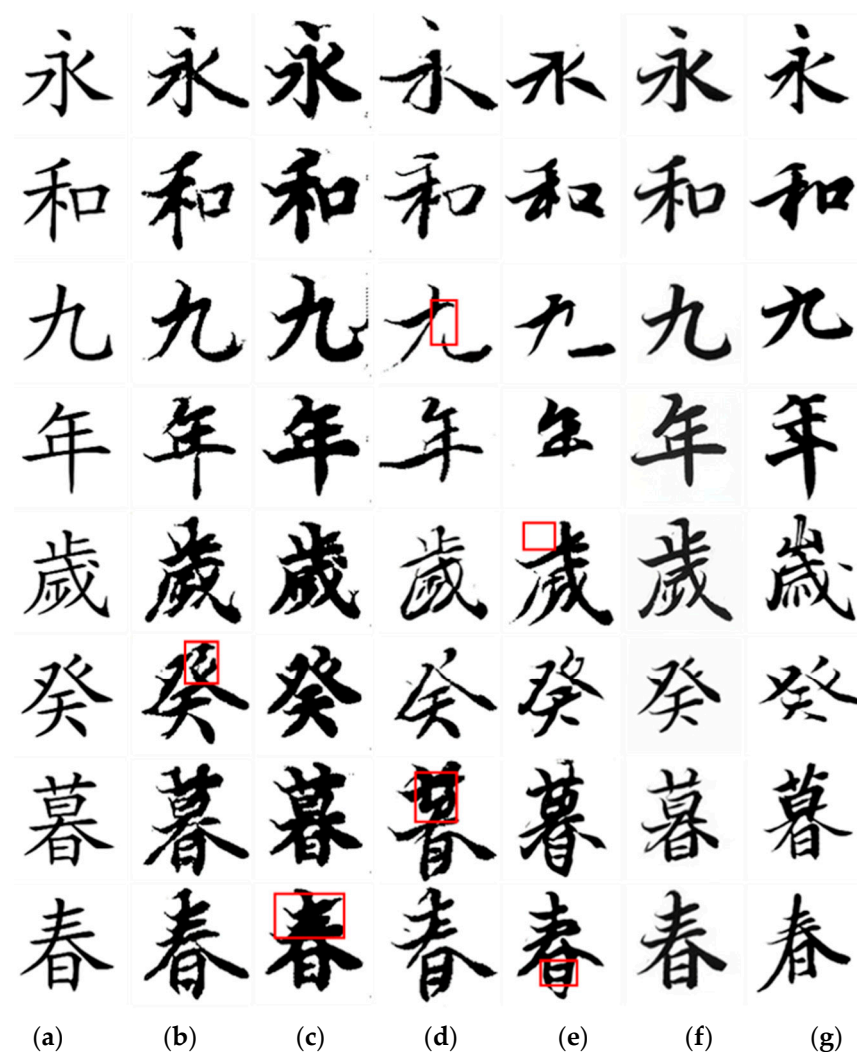 永 永 永 永 永 永 永
和 和 和 和 和 和 和
九 九 九 九 九 九 九
年 年 年 年 年 年 年
歲 歲 歲 歲 歲 歲 歲
癸 癸 癸 癸 癸 癸 癸
暮 暮 暮 暮 暮 暮 暮
春 春 春 春 春 春 春
(a) (b) (c) (d) (e) (f) (g)